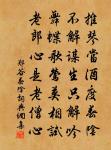 推琴當酒度春陰
不解謀生只解吟
舞蝶歌鶯莫相試
老郎心是老僧心